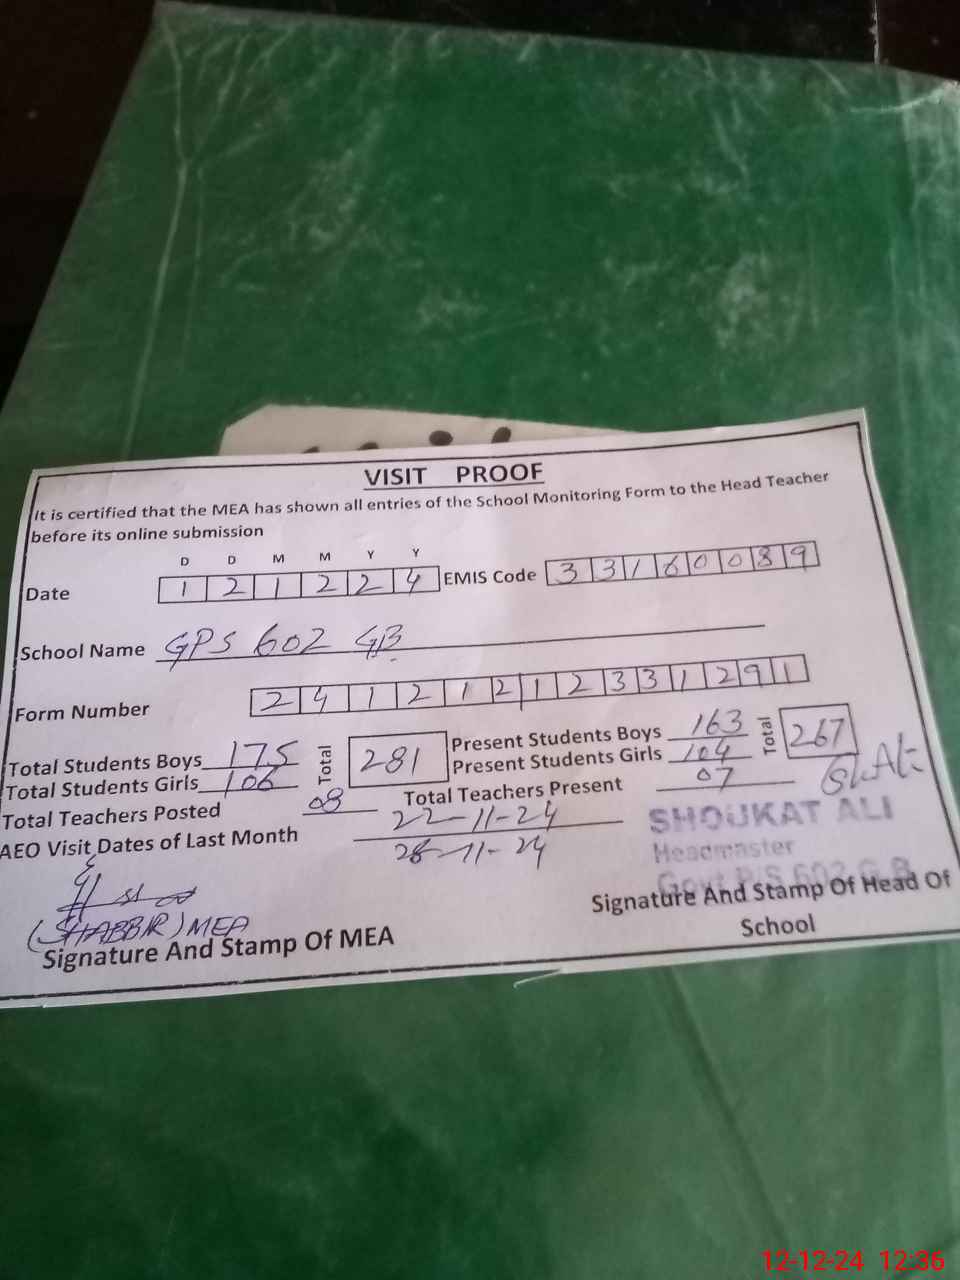 VISIT PROOF
It is certified that the MEA has shown all entries of the School Monitoring Form to the Head Teacher
before its online submission
D D M M Y Y
Date 1 2 1 2 2 4 EMIS Code 3 3 1 6 0 0 8 9
School Name GPS 602 GB
Form Number 2 4 1 2 1 2 1 2 3 3 1 2 9 1
Total Students Boys 175 Total 281 Present Students Boys 163 Total 267
Total Students Girls 106 Present Students Girls 104
Total Teachers Posted 08 Total Teachers Present 07
AEO Visit Dates of Last Month 22-11-24
28-11-24
Sh Ali
SHOUKAT ALI
Headmaster
Govt P/S 602 G.B
(SHABBIR) MEA
Signature And Stamp Of MEA
Signature And Stamp Of Head Of
School
12-12-24 12:36